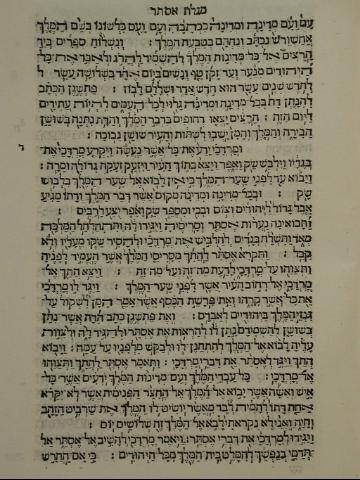 מגלת אסתר
עם ועם מדינה ומדינה ככתבה ועם ועם כלשונו בשם המלך
אחשורש נכתב ונחתם בטבעת המלך : ונשלוח ספרים ביד
הרצים אל כל מדינות המלך להשמיד להרג ולאבד את כל
היהודים מנער ועד זקן טף ונשים ביום אחד בשלושה עשר
לחדש שנים עשר הוא חדש אדר ושללם לבוז : פתשגן הכתב
להנתן דת בכל מדינה ומדינה גלוי לכל העמים להיות עתידים
ליום הזה : הרצים יצאו דחופים בדבר המלך והדת נתנה בשושן
הבירה והמלך והמן ישבו לשתות והעיר שושן נבוכה :
ד
ומרדכי ידע את כל אשר נעשה ויקרע מרדכי את
בגדיו וילבש שק ואפר ויצא בתוך העיר ויזעק זעקה גדולה ומרה :
ויבוא עד לפני שער המלך כי אין לבוא אל שער המלך בלבוש
שק : ובכל מדינה ומדינה מקום אשר דבר המלך ודתו מגיע
אבל גדול ליהודים וצום ובכי ומספד שק ואפר יצע לרבים :
ותבואינה נערות אסתר וסריסיה ויגידו לה ותתחלחל המלכה
מאד ותשלח בגדים להלביש את מרדכי ולהסיר שקו מעליו ולא
קבל : ותקרא אסתר להתך מסריסי המלך אשר העמיד לפניה
ותצוהו על מרדכי לדעת מה זה ועל מה זה : ויצא התך אל
מרדכי אל רחוב העיר אשר לפני שער המלך : ויגד לו מרדכי
את כל אשר קרהו ואת פרשת הכסף אשר אמר המן לשקול על
גנזי המלך ביהודיים לאבדם : ואת פתשגן כתב הדת אשר נתן
בשושן להשמידם נתן לו להראות את אסתר ולהגיד לה ולצוות
עליה לבוא אל המלך להתחנן לו ולבקש מלפניו על עמה : ויבוא
התך ויגד לאסתר את דברי מרדכי : ותאמר אסתר להתך ותצוהו
אל מרדכי : כל עבדי המלך ועם מדינות המלך ידעים אשר כל
איש ואשה אשר יבוא אל המלך אל החצר הפנימית אשר לא יקרא
אחת דתו להמית לבד מאשר יושיט לו המלך את שרביט הזהב
וחיה ואני לא נקראתי לבוא אל המלך זה שלושים יום :
ויגידו למרדכי את דברי אסתר : ויאמר מרדכי להשיב אל אסתר אל
תדמי בנפשך להמלט בית המלך מכל היהודים : כי אם החרש